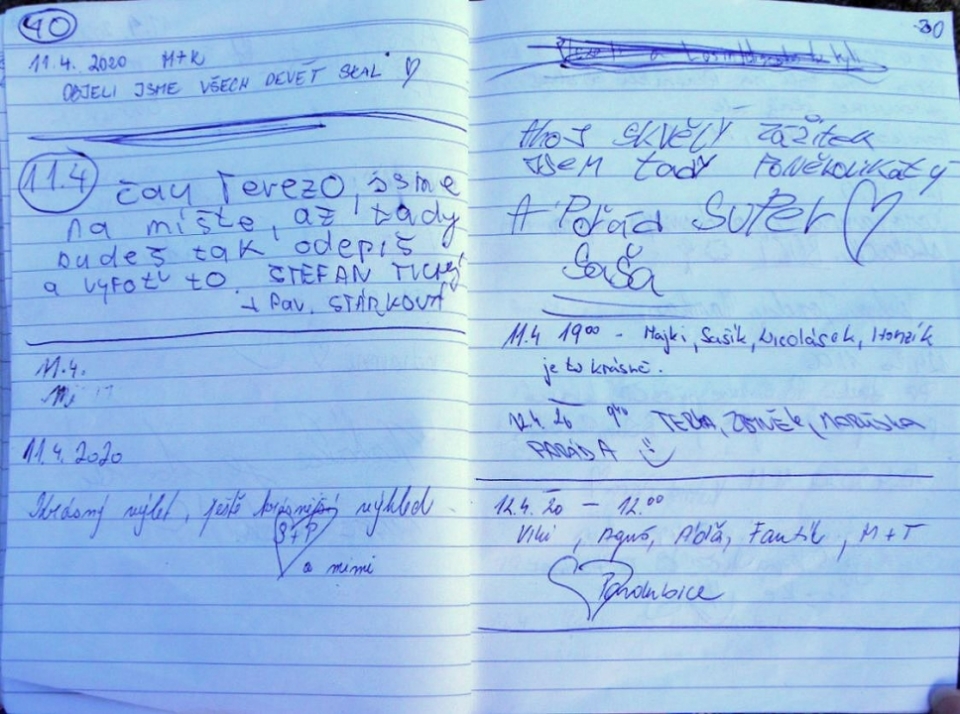 40
11.4. 2020 M+K
OBJELI JSME VŠECH DEVĚT SKAL ♡
11.4 čau Terezo, jsme
na místě, až tady
budeš tak odepiš
a vyfoť to. ŠTEFAN TICHÝ
+ Pav. STÁRKOVÁ
11.4.
11.4.2020
Krásný výlet, ještě krásnější výhled
P+P
a mimi
30
AHOJ SKVĚLÝ ZÁŽITEK
JSEM TADY PONĚKOLIKATÝ
A POŘÁD SUPER ♡
SAŠA
11.4 19⁰⁰ - Majki, Sašík, Nicolásek, Honzík
je to krásné.
12.4. 20 9⁴⁰ TERKA, ZDENĚK, MARUŠKA
PARÁDA
12.4. 20 - 12.⁰⁰
Viki, Aguš, Fantík, M+T
Pardubice